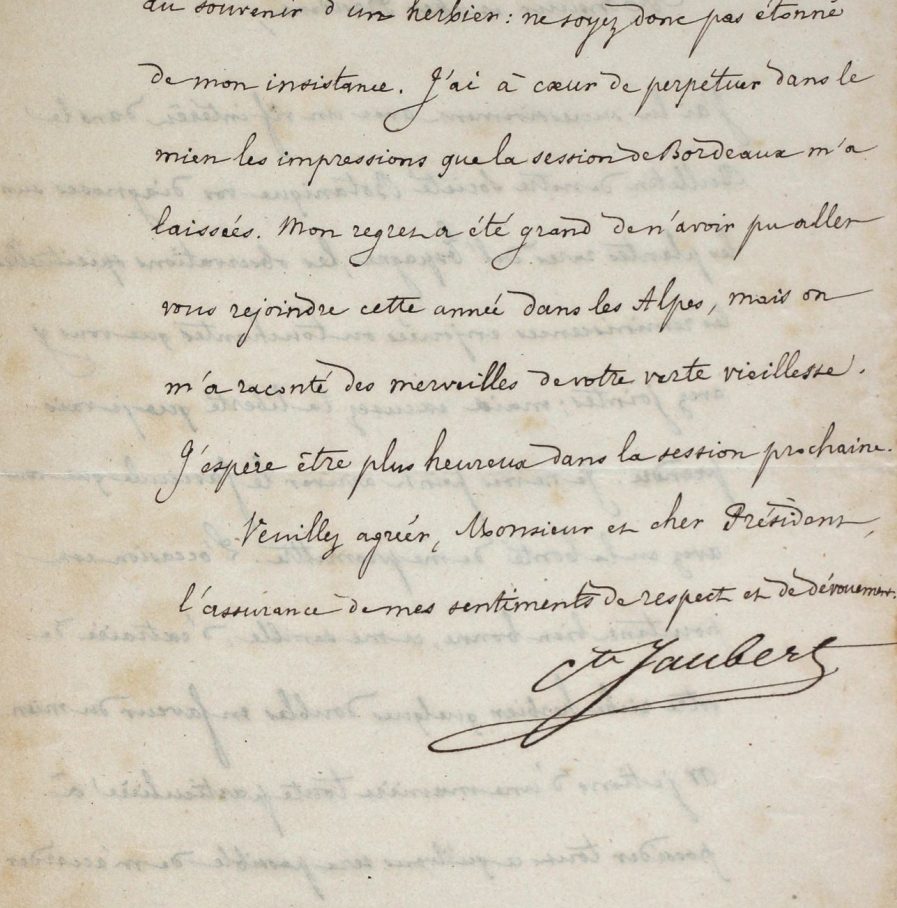 au souvenir d'un herbier : ne soyez donc pas étonné
de mon insistance. J'ai à cœur de perpétuer dans le
mien les impressions que la session de Bordeaux m'a
laissées. Mon regret a été grand de n'avoir pu aller
vous rejoindre cette année dans les Alpes, mais on
m'a raconté des merveilles de votre verte vieillesse.
J'espère être plus heureux dans la session prochaine.
Veuillez agréer, Monsieur et cher Président,
l'assurance de mes sentiments de respect et de dévouement.
Cte Jaubert